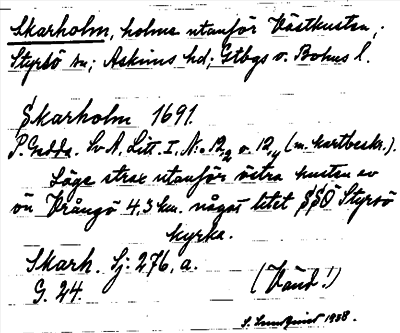 Skarholm, holme utanför Västkusten,
Styrsö sn; Askims hd; Gtbgs o. Bohus l.
Skarholm 1691.
P. Gedda. Sv A, Litt. I, No 12,2 o. 12,4 (m. kartbeskr.).
Läge strax utanför östra kusten av
ön Vrångö 4,3 km. något litet SSO Styrsö
kyrka.
Skarh. Sj: 276, a.
G. 24. (Vänd!)
S. Lundquist 1938.